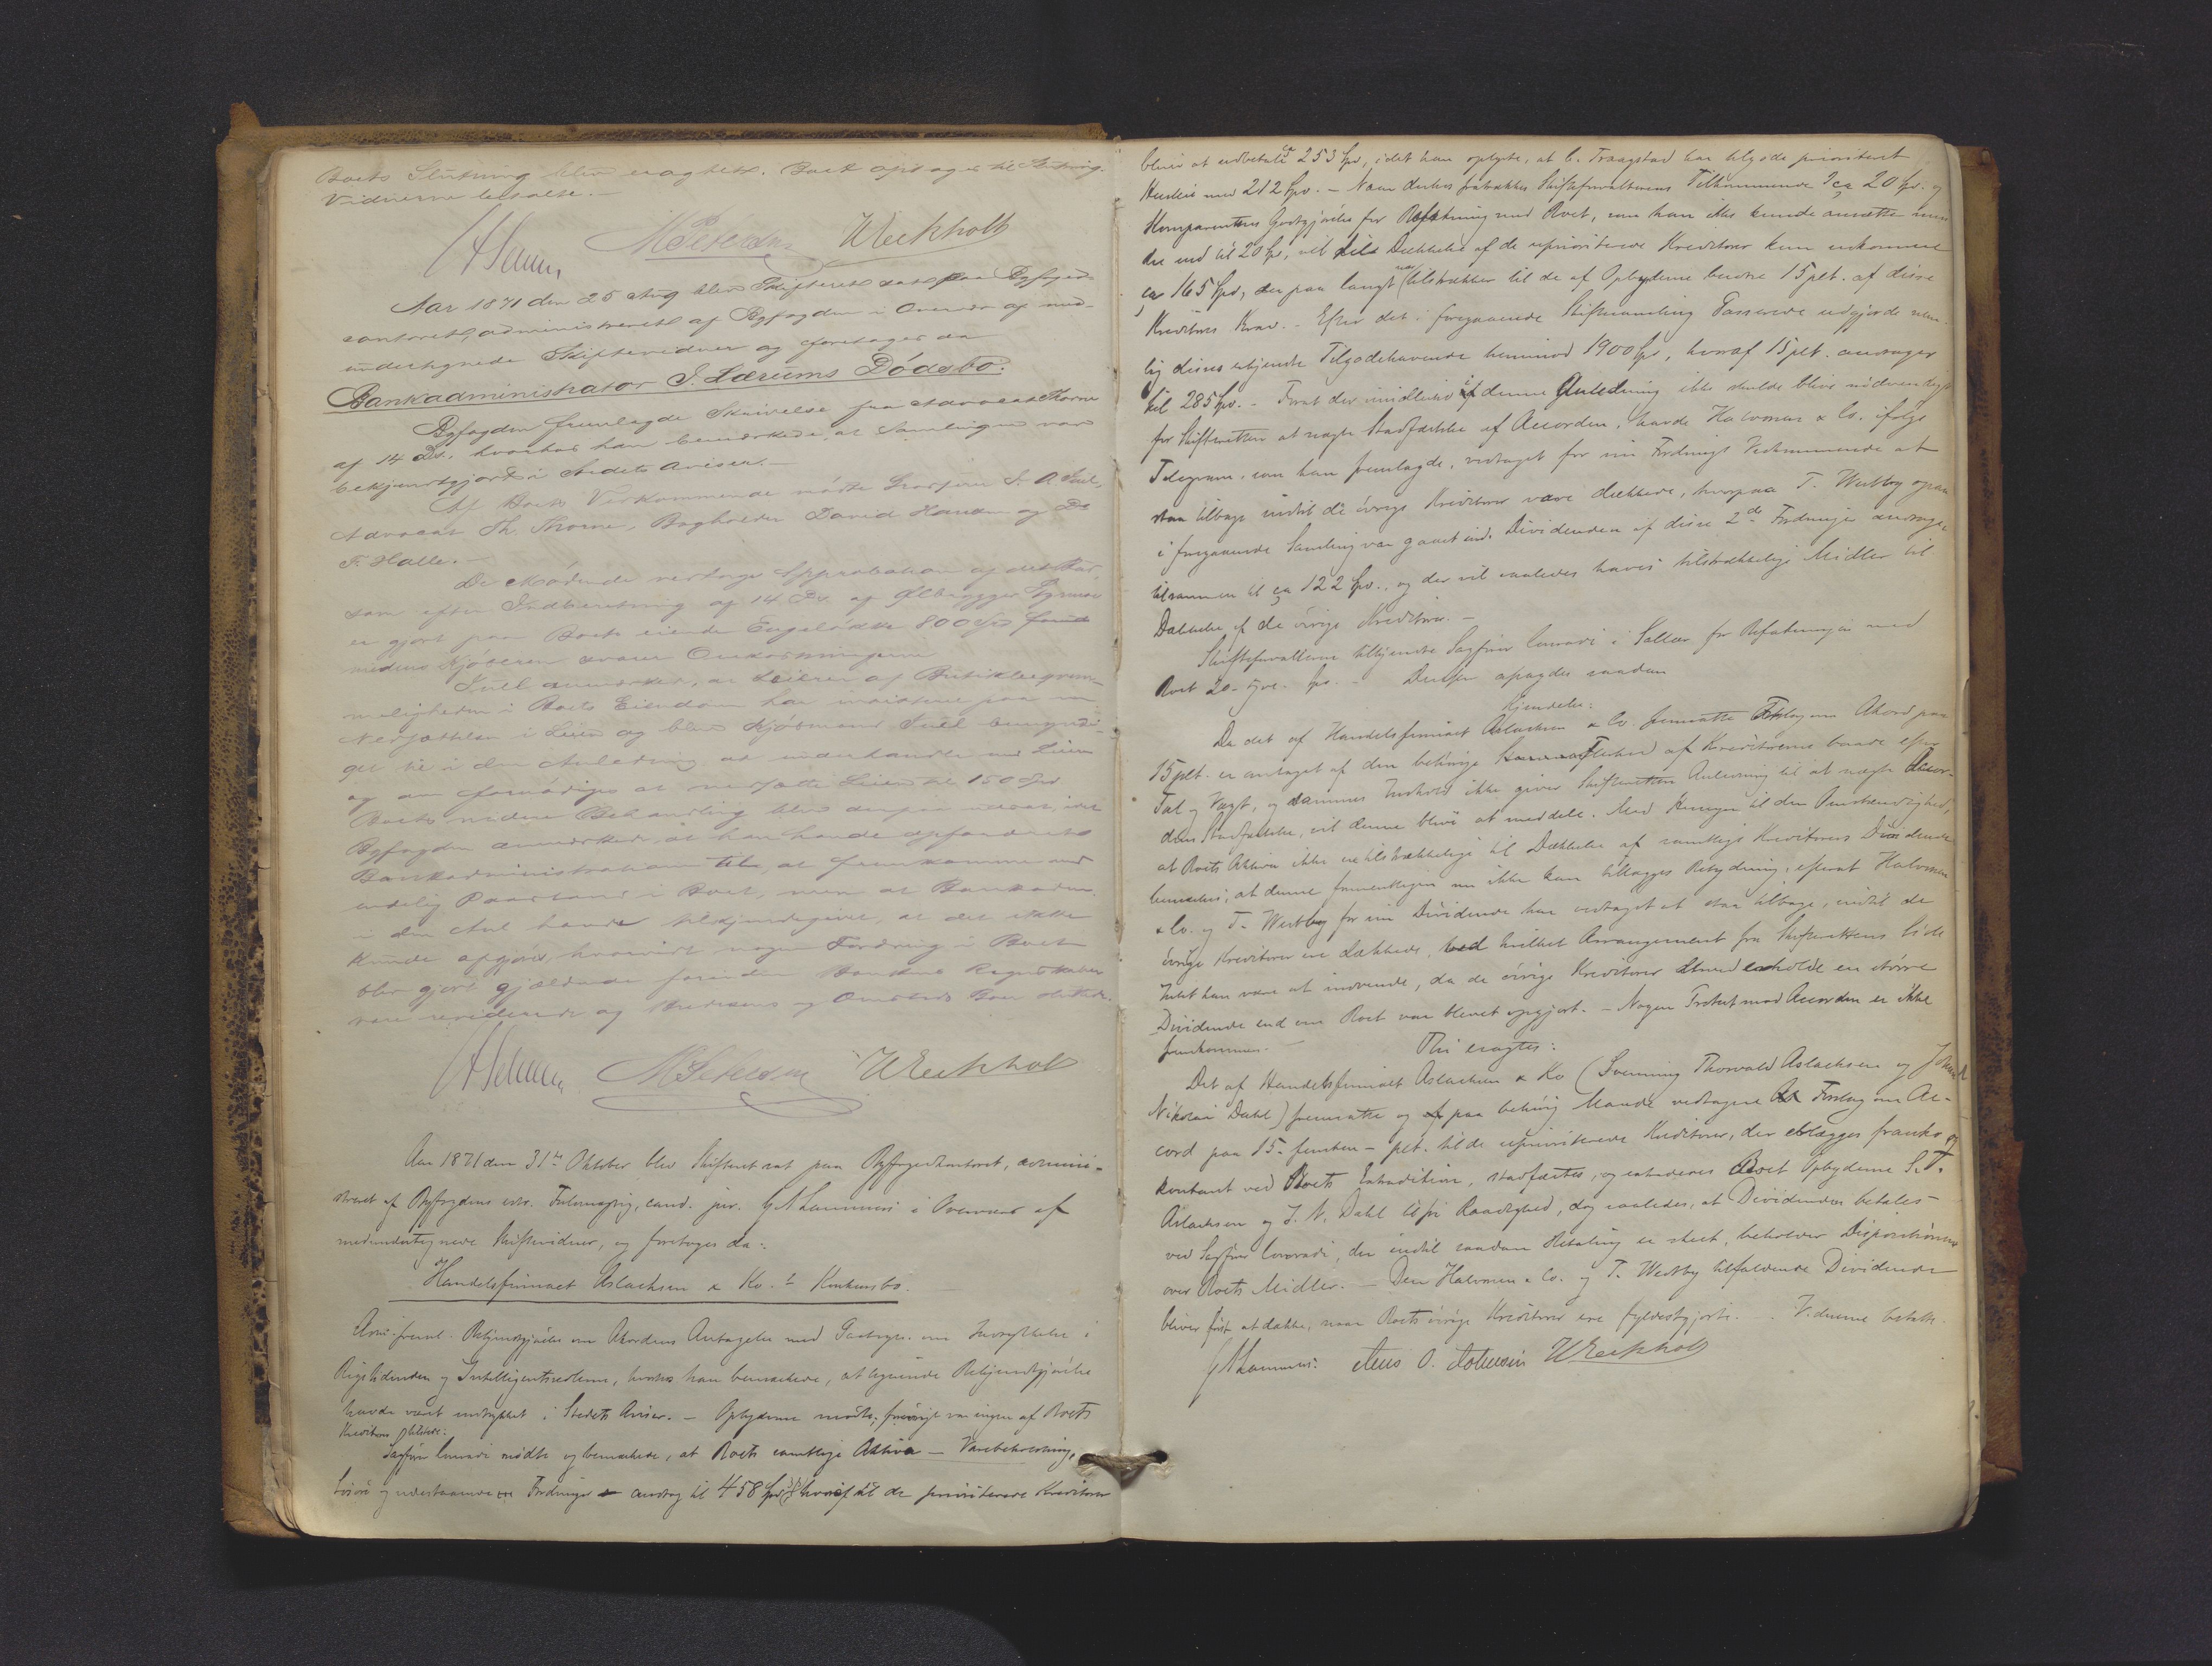 Boets Slutning blev eragtet. Boet optages til Slutning.
Vidnerne betalte.
M Petersen WEeckholt
Aar 1871 den 25 Aug blev Skifteret sat paa Byfoged-
contoret, administreret af Byfogden i Overvær af med-
undertegnede Skiftevidner og foretages da
Bankadministrator J. Lærums Dödsbo:
Byfogden fremlagde Skrivelse fra Advocat Thorne
af 14 Ds., hvorhos han bemærkede, at Samlingen var
bekjendtgjort i Stedets Aviser.
Af Boets Vedkommende mödte
Advocat Th. Thorne, Bogholder David Hansen og
F. Halle.
De Mödende vedtoge Approbation af det Bud,
som efter Indberetning af 14 Ds. af Ölbrygger
er gjort paa Boets eiende Engelökke 800 Spd
medens Kjöberen svarer Omkostningerne
anmærkede, at Leieren af
meligheden i Boets Eiendom har insisteret paa en
Nedsættelse i Leien og blev Kjöbmand bemyndi-
get til i den Anledning at underhandle med Leieren
og om fornödiges at nedsætte Leien til 150 Spd
Boets videre Behandling blev derpaa udsat, idet
Byfogden anmærkede, at han havde opfordret
Bankadministrationen til, at fremkomme med
endelig Paastand i Boet, men at Bankadm.
i den Anl havde tilkjendegivet, at det ikke
kunde afgjöres, hvorvidt nogen Fordring i Boet
blev gjort gjældende forinden Bankens Regnskaber
vare reviderede og
M Petersen WEeckholt
Aar 1871 den 31te Oktober blev Skifteret sat paa Byfogedkontoret, admini-
streret af Byfogdens edsv. Fuldmægtig, cand. jur. G A Lammers i Overvær af
medundertegnede Skiftevidner, og foretoges da:
Handelsfirmaet Aslachsen & Ko.s Konkursbo.
Adm. freml. Bekjendtgjörelse om Akordens Antagelse med om Indrykkelse i
Rigstidenden og Intelligentssedlerne, hvorhos han bemærkede, at lignende Bekjendtgjörelse
havde været indrykket i Stedets Aviser. – Opbyderne mödte; forövrigt var ingen af Boets
Kreditorer tilstede.
Sagförer Conradi mödte og bemærkede, at Boets samtlige Aktiva – Varebeholdning,
Lösöre og udestaaende Fordringer – androg til 458 Spd, hvoraf til de prioriterede Kreditorer
bliver at udbetale 253 Spd, idet han oplyste, at C. Traagstad har tilgode prioriteret
Husleie med 212 Spd. – Naar derhos fratrækkes Skifteforvalterens Tilkommende ca 20 Spd. og
Komparentens Godtgjörelse for Befatning med Boet, som han ikke kunde ansætte min-
dre end til 20 Spd, vil til Dækkelse af de uprioriterede Kreditorer kun udkomme
ca 165 Spd, der paa langt nær tilstrækker til de af Opbyderne budne 15 pCt. af disse
Kreditors Krav. – Efter det i foregaaende Skiftesamling Passerede udgjorde nem-
lig disses udgjorte Tilgodehavende henimod 1900 Spd, hvoraf 15 pCt. andrager
til 285 Spd. – Forat der imidlertid i denne Anledning ikke skulde blive nödvendigt
for Skifteretten at nægte Stadfæstelse af Accorden, havde Halvorsen & Co. ifölge
Telegram, som han fremlagde, vedtaget for sin Fordrings Vedkommende at
staa tilbage indtil de övrige Kreditorer vare dækkede, hvorpaa T. Westby ogsaa
i foregaaende Samling var gaaet ind. Dividenden af disse 2de Fordringer andrager
tilsammen til ca 122 Spd., og der vil saaledes haves tilstrækkelige Midler til
Dækkelse af de övrige Kreditorer. –
Skifteforvalteren tilkjendte Sagförer Conradi i Sallær for Befatningen med
Boet 20 – tyve – Spd. – Derpaa afsagdes saadan
Kjendelse:
Da det af Handelsfirmaet Aslachsen & Co. fremsatte Forslag om Akord paa
15 pCt. er antaget af den behörige Fleerhed af Kreditorerne baade efter
Tal og Vægt, og sammes Indhold ikke giver Skifteretten Anledning til at nægte Accor-
dens Stadfæstelse, vil denne blive at meddele. Med Hensyn til den Omstændighed,
at Boets Aktiva ikke ere tilstrækkelige til Dækkelse af samtlige Kreditorers Dividende
bemærkes, at denne formentligen nu ikke kan tillægges Betydning, efterat Halvorsen
& Co. og T. Westby for sin Dividende har vedtaget at staa tilbage, indtil de
övrige Kreditorer ere dækkede, ved hvilket Arrangement fra Skifterettens Side
Intet kan være at indvende, da de övrige Kreditorer derved erholde en större
Dividende end om Boet var blevet opgjort. – Nogen Protest mod Accorden er ikke
fremkommen. –
Thi eragtes:
Det af Handelsfirmaet Aslachsen & Ko (Svenning Thorvald Aslachsen og Johan
Nikolai Dahl) fremsatte og paa behörig Maade vedtagne Forslag om Ac-
cord paa 15 – femten – pCt. til de uprioriterede Kreditorer, der erlægges franko og
kontant ved Boets Extradition, stadfæstes, og extraderes Boet Opbyderne S. T.
Aslachsen og J. N. Dahl til fri Raadighed, dog saaledes, at Dividenden betales
ved Sagförer Conradi, der indtil saadan Betaling er skeet, beholder Dispositionen
over Boets Midler. – Den Halvorsen & Co. og T. Westby tilfaldende Dividende
bliver först at dække, naar Boets övrige Kreditorer ere fyldestgjorte. – Vidnerne betalte.
G A Lammers. Anis O. Johnsen WEeckholt